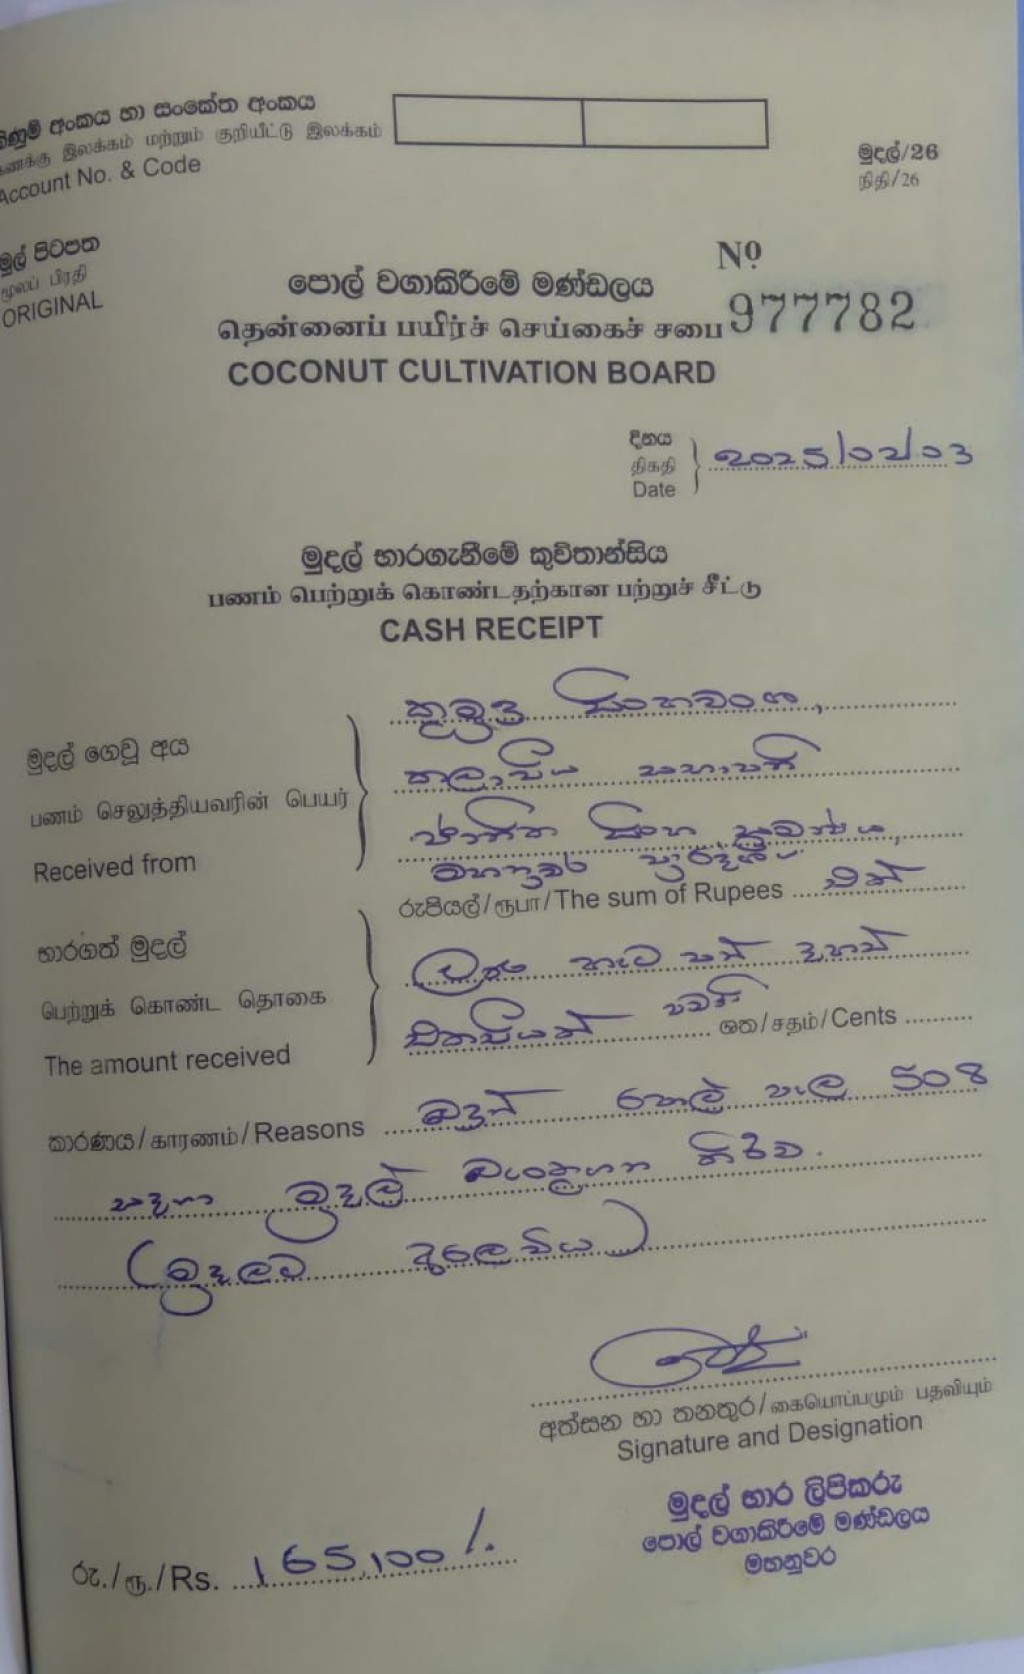 ගිණුම් අංකය හා සංකේත අංකය
கணக்கு இலக்கம் மற்றும் குறியீட்டு இலக்கம்
Account No. & Code
මුදල්/26
நிதி/26
මුල් පිටපත
மூலப் பிரதி
ORIGINAL
No
977782
පොල් වගාකිරීමේ මණ්ඩලය
தென்னைப் பயிர்ச் செய்கைச் சபை
COCONUT CULTIVATION BOARD
දිනය
திகதி
Date
2025/02/03
මුදල් භාරගැනීමේ කුවිතාන්සිය
பணம் பெற்றுக் கொண்டதற்கான பற்றுச் சீட்டு
CASH RECEIPT
මුදල් ගෙවූ අය
பணம் செலுத்தியவரின் பெயர்
Received from
කුමුදු සිංහවංශ,
සභාපති
සිංහ
මහනුවර
රුපියල්/ரூபா/The sum of Rupees එක්
භාරගත් මුදල්
பெற்றுக் கொண்ட தொகை
The amount received
ලක්ෂ හැට පන් දහස්
එකසියක් පමණි ශත/சதம்/Cents
කාරණය/காரணம்/Reasons පැල 508
සඳහා මුදල්
(මුදලට
අත්සන හා තනතුර/கையொப்பமும் பதவியும்
Signature and Designation
මුදල් භාර ලිපිකරු
පොල් වගාකිරීමේ මණ්ඩලය
මහනුවර
රු./ரூ./Rs. 165,100/.